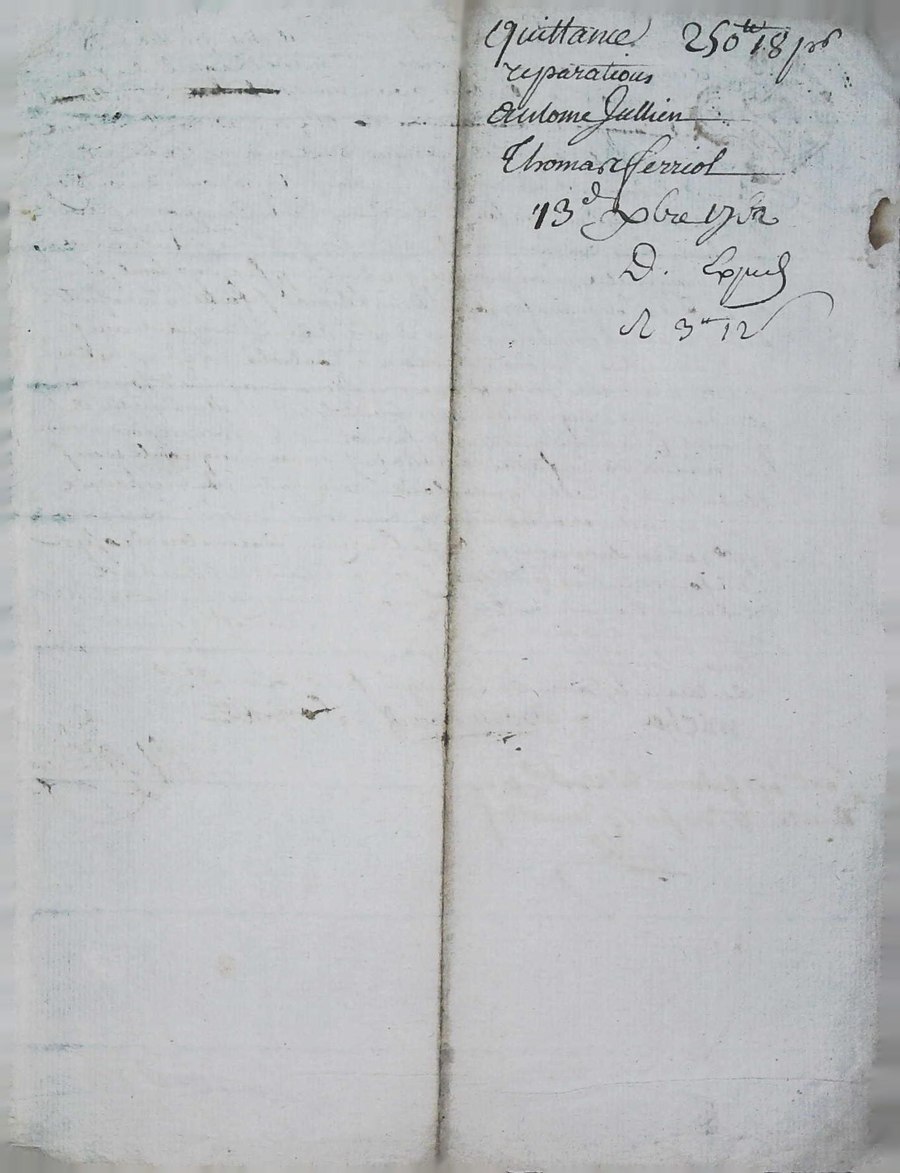 Quittance 250tt 18
reparations
Antoine Jullien
Thomas Ferriol
13d xbre 1752
D.
R 3tt 12